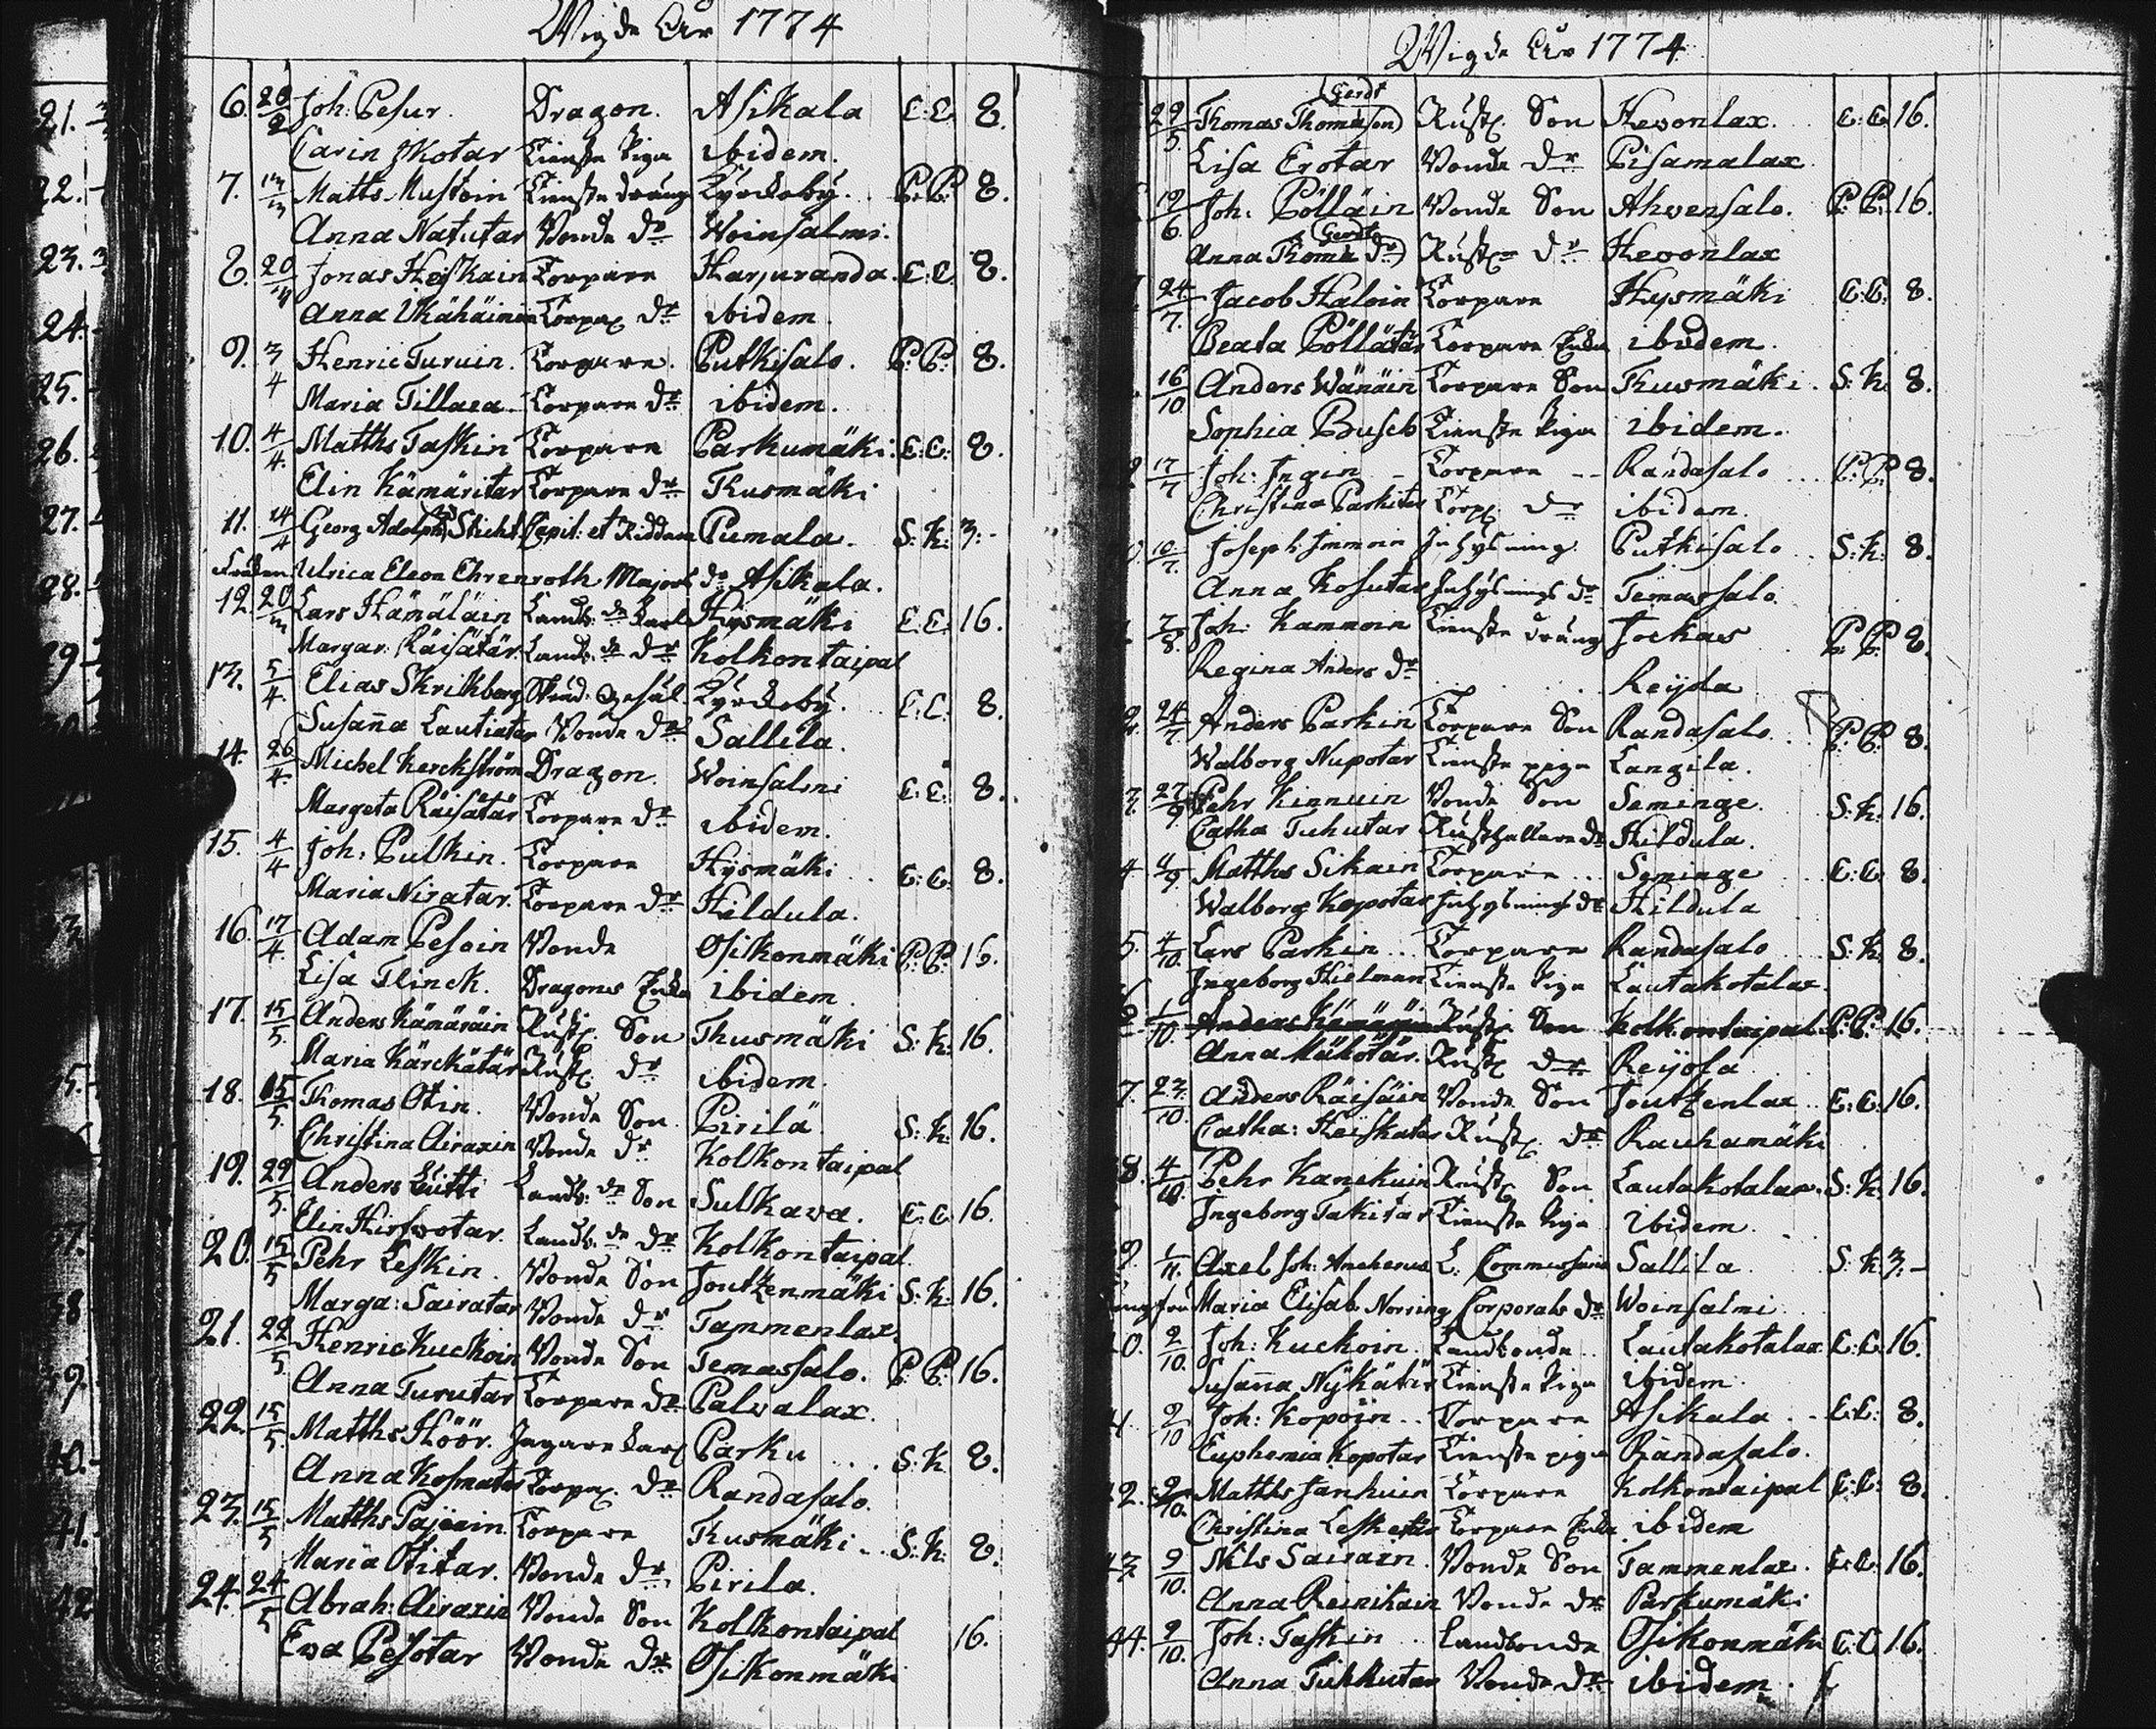 Wigde År 1774
6. 20/2 Joh: Pesur. Dragon. Asikala C:C. 8.
Carin Skotar Tienste Piga ibidem.
7. Matts Mustoin Tienste dräng Kyrckoby. P:P. 8.
Anna Natutar Bonde Dr Woinsalmi.
8. 20 Jonas Heiskain Torpare Harjuranda. C:C. 8.
Anna Ukähäinin Torpa Dr ibidem
9. 3/4 Henric Turuin. Torpare. Putkisalo. P:P. 8.
Maria Tillaea Torpare Dr ibidem.
10. 4/4. Matths Taskin Torpare Parkumäki: C:C. 8.
Elin Kämäritar Torpare Dr Thusmäki
11. 14/4 Georg Adolph Sticht Capit: et Riddare Pumala. S:K: 3:-
Fröken Ulrica Eleon Ehrenroth Majors dr Asikala.
12. 20 Lars Hämäläin Landb: de Karl Hysmäki C:C. 16.
Margar: Räisätär Landb. de Dr Kolkontaipal
13. 5/4. Elias Skrikberg Gesäl Kyrckoby. C:C. 8.
Susanna Lautiatar Bonde Dr Sallila.
14. 26/4. Michel Kerckström Dragon. Woinsalmi C:C. 8.
Margeta Räisätär Torpare Dr ibidem.
15. 4/4 Joh: Pulkin. Torpare Hysmäki C:C. 8.
Maria Niratar. Torpare Dr Hildula.
16. 17/4. Adam Pesoin Bonde Osikonmäki P:P. 16.
Lisa Flinck. Dragons Enka ibidem
17. 15/5. Anders Kämäräin Rust. Son Thusmäki S:K: 16.
Maria Kärckätär Rust. Dr ibidem.
18. 15/5. Thomas Otin. Bonde Son Pirilä S:K: 16.
Christina Airaxin Bonde Dr Kolkontaipal
19. 29/5. Anders Luitti Landb: de Son Sulkava. C:C. 16.
Elin Hirswotar. Landb. de Dr Kolkontaipal.
20. 15/5 Pehr Leskin. Bonde Son Joutzenmäki S:K: 16.
Marga: Sairatar Bonde Dr Tammenlax.
21. 22/5 Henric Kuckoin Bonde Son Temassalo. P:P. 16.
Anna Turutar Torpare Dr Palvalax.
22. 15/5. Matths Höör. Jagare Karl Parku S:K. 8.
Anna Kosmatar Torpa. Dr Randasalo.
23. 15/5 Matths Pajain. Torpare Thusmäki S:K: 8.
Maria Otitar. Bonde Dr Pirila.
24. 24/5 Abrah: Airaxin Bonde Son Kolkontaipal 16.
Ewa Pesotar Bonde Dr Osikonmäki
21.
22.
23.
24.
25.
26.
27.
28.
Wigde År 1774
Gerdt
29/5. Thomas Thomasson Rust. Son Hevonlax. C:C. 16.
Lisa Erotar Bonde Dr Pisamalax
19/6. Joh: Pölläin Bonde Son Ahvensalo. P:P. 16.
Gerdt
Anna Thoma Dr Rust. Dr Hevonlax
24/7. Jacob Haloin Torpare Hysmäki C:C. 8.
Beata Pöllätär Torpare Enka ibidem.
16/10 Anders Wänäin Torpare Son Thusmäki. S:K. 8.
Sophia Busch Tienste Piga ibidem.
17/7 Joh: Ingin Torpare Randasalo P:P. 8.
Christina Parkitar Torp. Dr ibidem.
10/7. Joseph Immoin Inhysning Putkisalo S:K: 8.
Anna Kosutar Inhysnings Dr Temassalo.
7/8. Joh: Kammoin Tienste dräng Jockas P:P. 8.
Regina Anders Dr Reijola
24/7. Anders Parkin Torpare Son Randasalo P:P. 8.
Walborg Nupotar Tienste piga Langila.
27/9 Pehr Kinnuin Bonde Son Säminge. S:K: 16.
Catha Tuhutar Rusthallare Dr Hildula.
4 4/9. Matths Sikain Torpare Säminge C:C. 8.
Walborg Kopotar Inhysnings Dr Hildula
5. 4/10. Lars Parkin Torpare Randasalo S:K. 8.
Ingeborg Hielman Tienste Piga Lautakotalax.
6 1/10. Anders Kämäräin Rust. Son Kolkontaipal P:P. 16.
Anna Mäkötär. Rust. Dr Reijola
7. 23/10. Anders Räisäin Bonde Son Joutzenlax C:C. 16.
Catha: Heiskatar Rust. Dr Rauhamäki
8. 4/10. Pehr Kanckuin Rust. Son Lautakotalax. S:K. 16.
Ingeborg Takitar Tienste Piga ibidem
9. 1/11. Axel Joh: Ancherus L: Commissarie Sallila S:K. 3:-
Jungfru Maria Elisab. Norring Corporals Dr Woinsalmi
0. 2/10. Joh: Kuckoin. Landbonde Lautakotalax C:C. 16.
Susanna Nykätär Tienste Piga ibidem
2/10 Joh: Kopoin Torpare Asikala C:C. 8.
Euphemia Kopotar Tienste piga Randasalo.
2. 2/10. Matths Janhuin Torpare Kolkontaipal C:C. 8.
Christina Lesketär Torpare Enka ibidem
43 9/10. Nils Sairain. Bonde Son Tammenlax. C:C. 16.
Anna Reinikain Bonde Dr Parkumäki
44. 9/10. Joh: Taskin Landbonde Osikonmäki C:C 16.
Anna Tukkutar Bonde Dr ibidem.